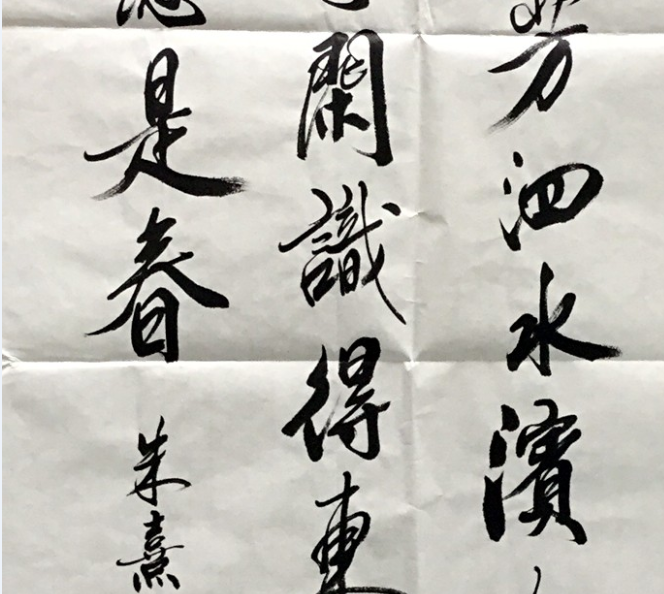 芳泗水濱
閑識得東
是春
朱熹